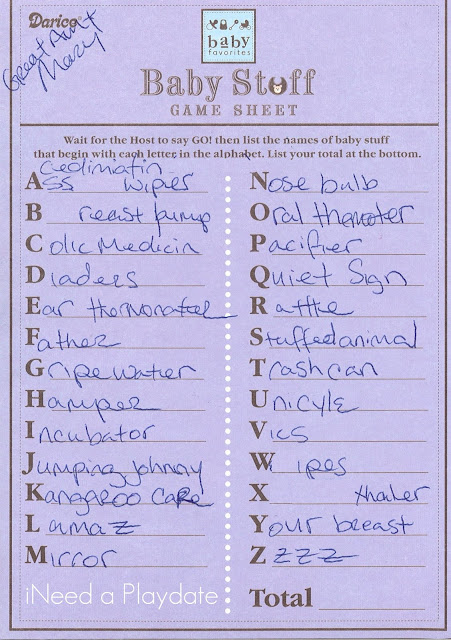 Darice
Great Aunt
Mary
baby
favorites
Baby Stuff
GAME SHEET
Wait for the Host to say GO! then list the names of baby stuff
that begin with each letter in the alphabet. List your total at the bottom.
Ass wiper
Breast pump
Colic Medicin
Diapers
Ear
Father
Gripe water
Hamper
Incubator
Jumping Johnny
Kangaroo Care
Lamaz
Mirror
Nose bulb
Oral
Pacifier
Quiet Sign
Rattle
Stuffed animal
Trash can
Unicyle
Vics
Wipes
X
Your breast
Zzzz
Total
iNeed a Playdate